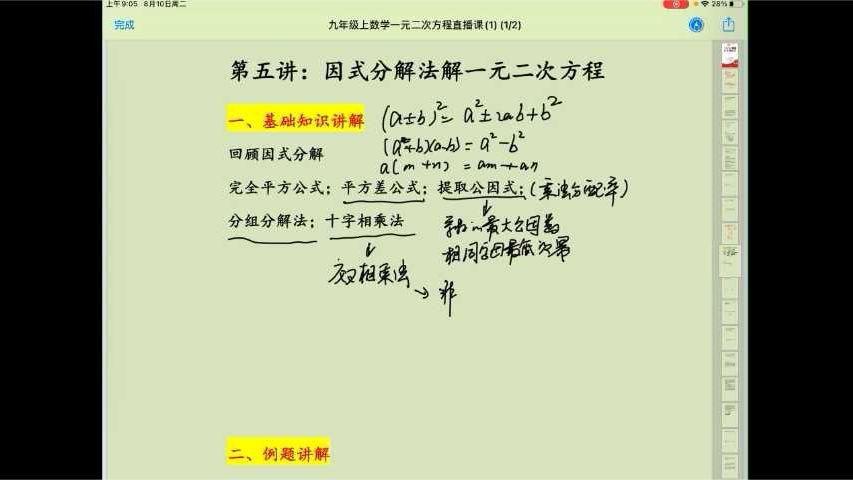 上午9:05 8月10日周二
28%
完成
九年级上数学一元二次方程直播课(1) (1/2)
第五讲：因式分解法解一元二次方程
一、基础知识讲解 (a±b)²=a²±2ab+b²
回顾因式分解 (a+b)(a-b)=a²-b²
a(m+n)=am+an
完全平方公式；平方差公式；提取公因式；(乘法分配率)
分组分解法；十字相乘法
最大公因数
相同字母最低次幂
交叉相乘法
→
二、例题讲解